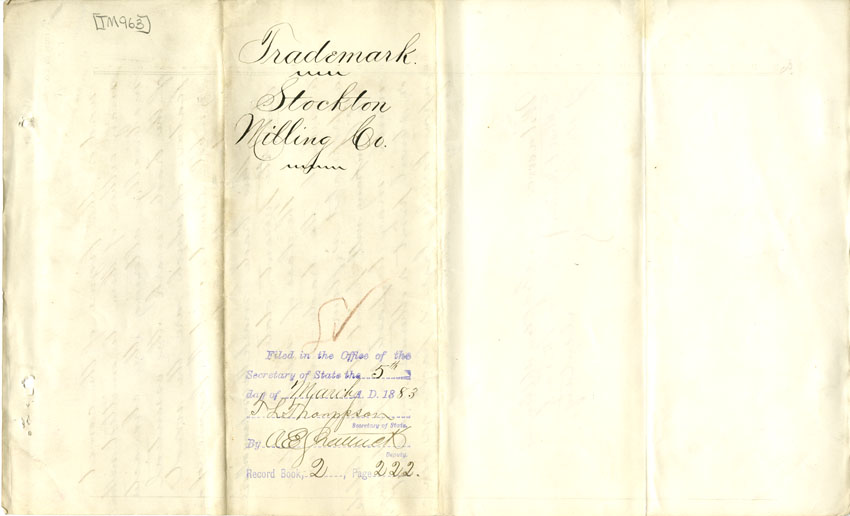 [TM963]
Trademark.
Stockton
Milling Co.
Filed in the Office of the
Secretary of State the 5th
day of March A. D. 1883
T. L. Thompson
Secretary of State.
By A. E.
Deputy.
Record Book, 2, Page 222.